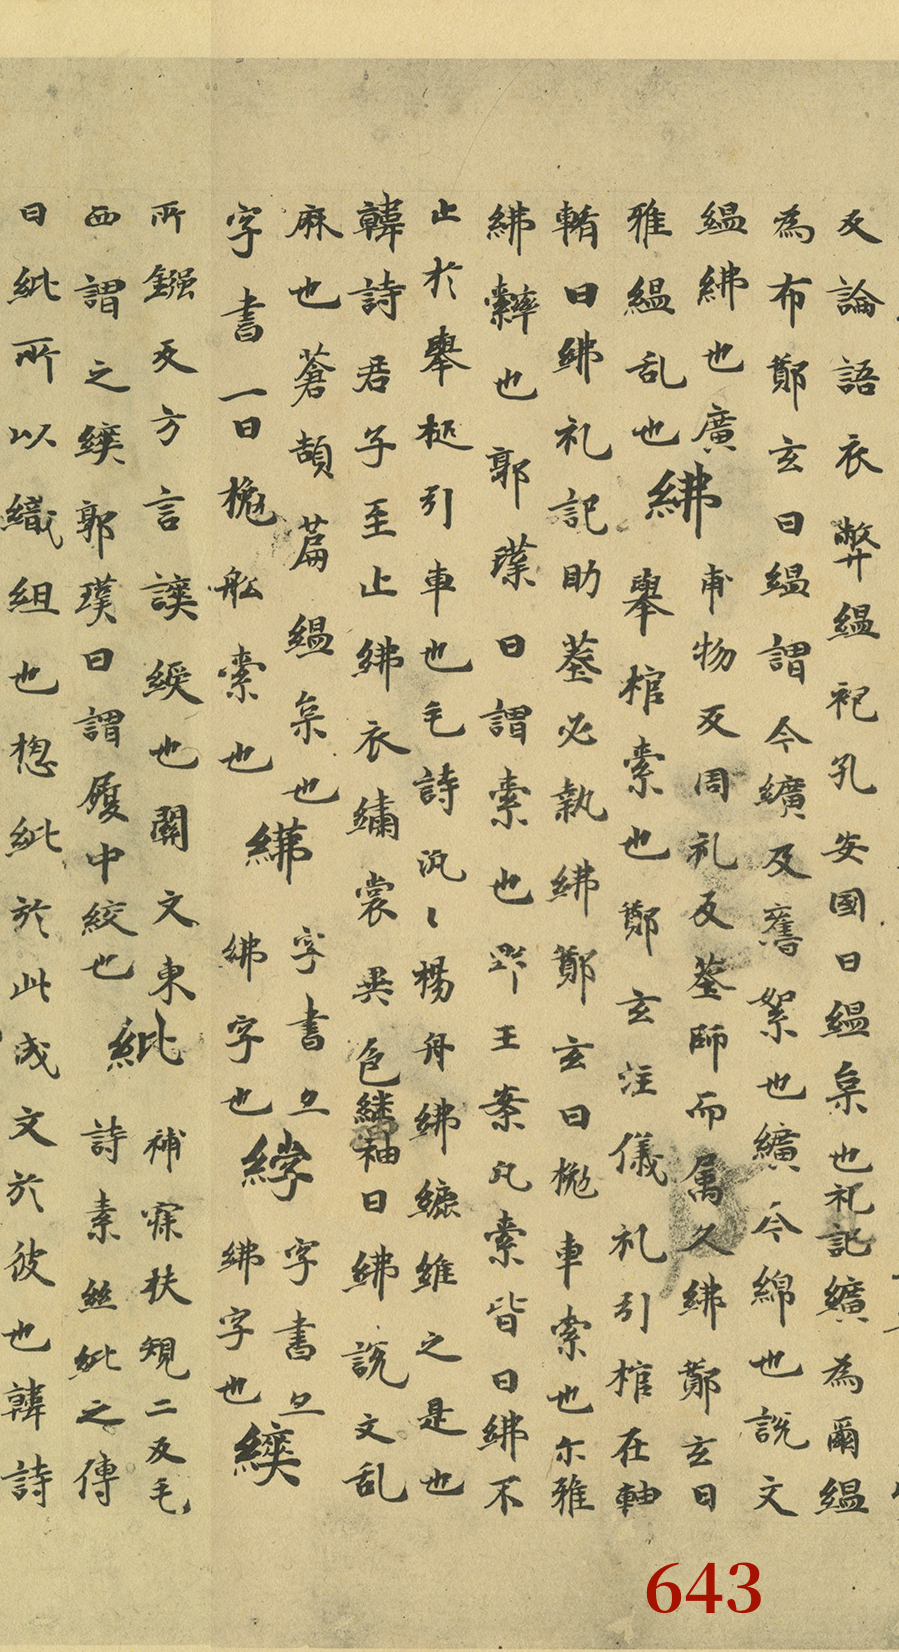 反論語衣弊縕袍孔安國曰縕枲也礼記纊為爾縕
為布鄭玄曰縕謂今纊及舊絮也纊今綿也說文
縕紼也廣
雅縕乱也
紼甫物反周礼及葬師而属久紼鄭玄曰
舉棺索也鄭玄注儀礼引棺在軸
輴曰紼礼記助葬必執紼鄭玄曰撥車索也尒雅
紼繂也郭璞曰謂索也野王案凡索皆曰紼不
止於舉柩引車也毛詩汎〻楊舟紼纚維之是也
韓詩君子至止紼衣繡裳異色繼袖曰紼說文乱
麻也蒼頡篇縕枲也
字書一曰挽舩索也
䋨
字書亦
紼字也
綍
字書亦
紼字也
緓
所鎫反方言䜅緓也關文東
西謂之緓郭璞曰謂履中絞也
紕
補寐扶規二反毛
詩素絲紕之傳
曰紕所以織組也揔紕於此成文於彼也韓詩
643